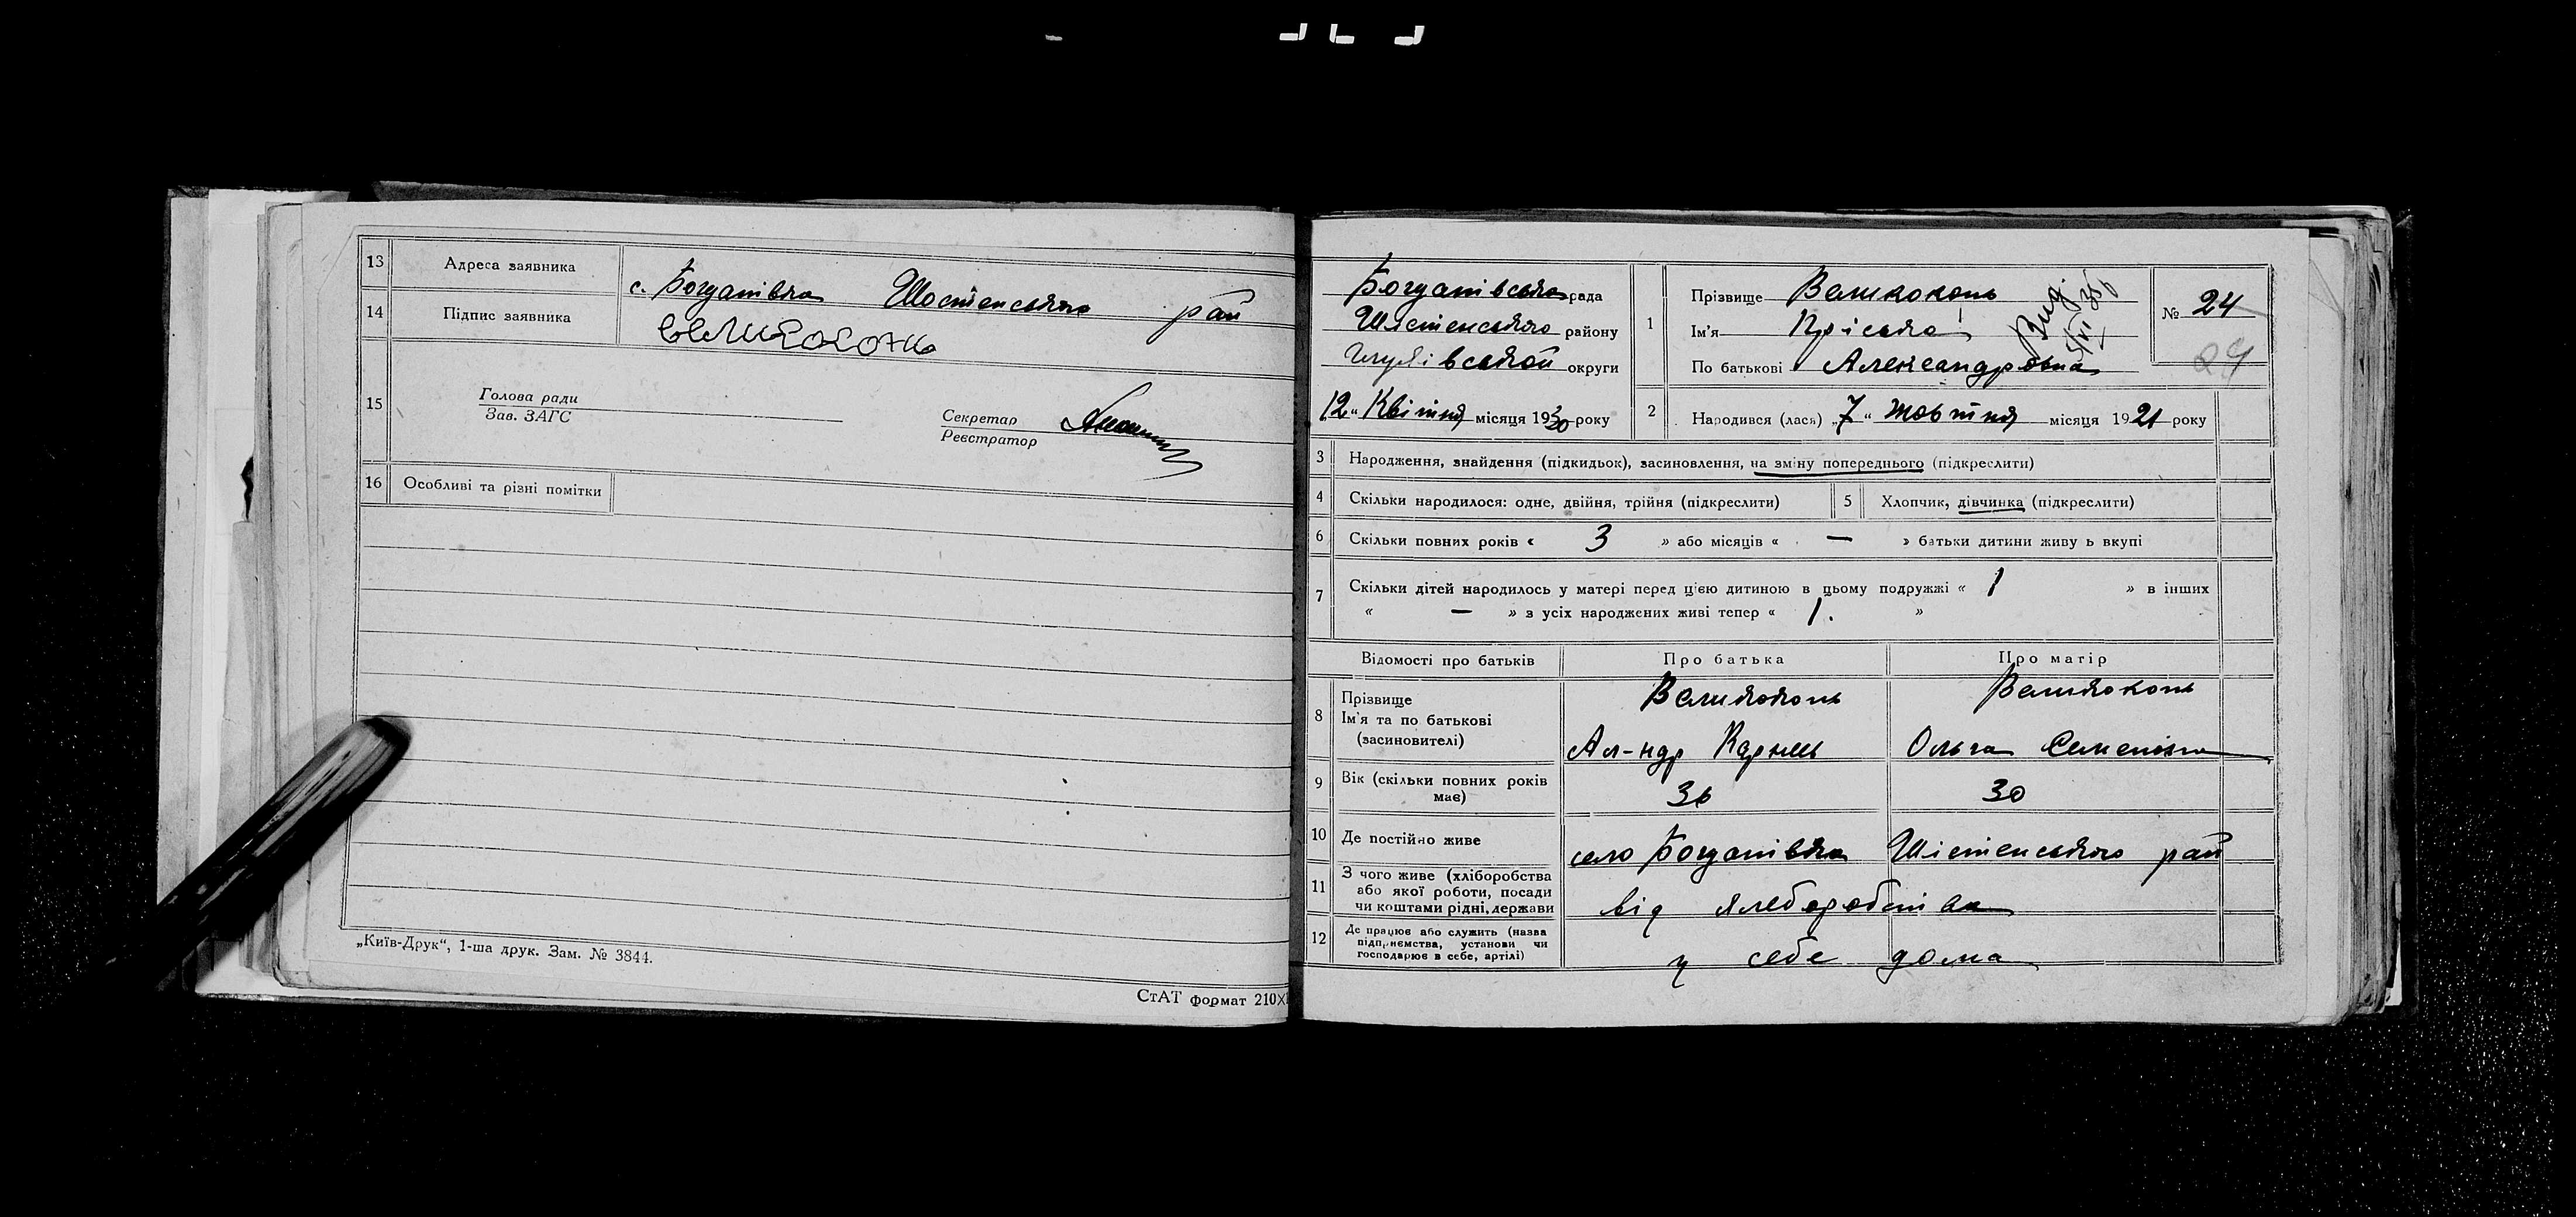 13 Адреса заявника с. Богданівка Шостенського рай
14 Підпис заявника
15 Голова ради
Зав. ЗАГС
Секретар
Реєстратор
16 Особливі та різні помітки
„Київ-Друк“, 1-ша друк. Зам. № 3844.
СтАТ формат 210X
Богданівська рада
Шостенського району
Глухівської округи
„12“ Квітня місяця 1930 року
1 Прізвище Великоконь
Ім'я Пріська
По батькові Александровна
Вид.
№ 24
24
2 Народився (лася) „7“ жовтня місяця 1921 року
3 Народження, знайдення (підкидьок), засиновлення, на зміну попереднього (підкреслити)
4 Скільки народилося: одне, двійня, трійня (підкреслити)
5 Хлопчик, дівчинка (підкреслити)
6 Скільки повних років « 3 » або місяців « — » батьки дитини живу ь вкупі
7 Скільки дітей народилось у матері перед цією дитиною в цьому подружжі « 1 » в інших
« — » з усіх народжених живі тепер « 1. »
Відомості про батьків Про батька Про матір
8 Прізвище Великоконь Великоконь
Ім'я та по батькові
(засиновителі) Ал-ндр Карнеев Ольга Семенівна
9 Вік (скільки повних років
має) 36 30
10 Де постійно живе село Богданівка Шістенського рай
11 З чого живе (хліборобства
або якої роботи, посади
чи коштами рідні, держави від хлеборобства
12 Де працює або служить (назва
підприємства, установи чи
господарює в себе, артілі) у себе дома